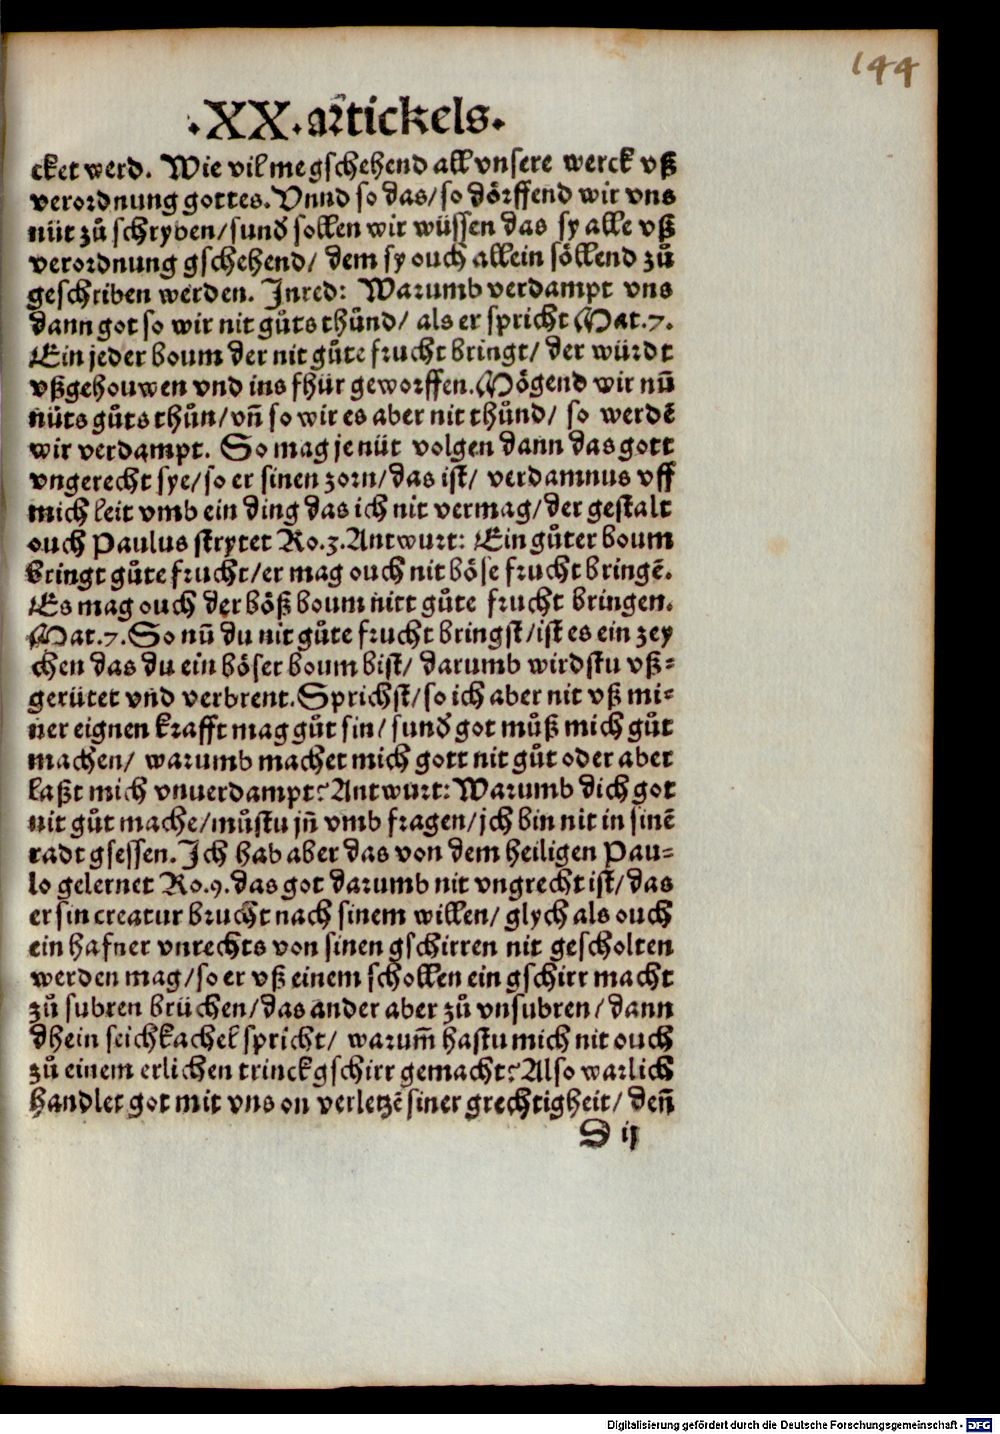 144
.XX. artickels.
cket werd. Wie vil me gschehend all vnsere werck vß
verordnung gottes. Vnnd so das/ so dörffend wir vns
nüt zů schryben/ sunď sollen wir wüssen das sy alle vß
verordnung gschehend/ dem sy ouch allein söllend zů
geschriben werden. Inred: Warumb verdampt vns
dann got so wir nit gůts thůnd/ als er spricht Mat.7.
Ein jeder boum der nit gůte frucht bringt/ der würdt
vßgehouwen vnd ins fhür geworffen. Mögend wir nū
nüts gůts thůn/ vn̄ so wir es aber nit thůnd/ so werdē
wir verdampt. So mag je nüt volgen dann das gott
vngerecht sye/ so er sinen zorn/ das ist/ verdamnus vff
mich leit vmb ein ding das ich nit vermag/ der gestalt
ouch Paulus strytet Ro.3. Antwurt: Ein gůter boum
bringt gůte frucht/ er mag ouch nit böse frucht bringē.
Es mag ouch der böß boum nitt gůte frucht bringen.
Mat.7. So nū du nit gůte frucht bringst/ ist es ein zey
chen das du ein böser boum bist/ darumb wirdstu vß⸗
gerütet vnd verbrent. Sprichst/ so ich aber nit vß mi⸗
ner eignen krafft mag gůt sin/ sunď got můß mich gůt
machen/ warumb machet mich gott nit gůt oder aber
laßt mich vnuerdampt? Antwurt: Warumb dich got
nit gůt mache/ můstu jn̄ vmb fragen/ jch bin nit in sinē
radt gsessen. Ich hab aber das von dem heiligen Pau⸗
lo gelernet Ro.9. das got darumb nit vngrecht ist/ das
er sin creatur brucht nach sinem willen/ glych als ouch
ein hafner vnrechts von sinen gschirren nit gescholten
werden mag/ so er vß einem schollen ein gschirr macht
zů subren brüchen/ das ander aber zů vnsubren/ dann
dhein seichkachel spricht/ warum̄ hastu mich nit ouch
zů einem erlichen trinckgschirr gemacht? Also warlich
handlet got mit vns on verletzē siner grechtigheit/ den̄
S ij
Digitalisierung gefördert durch die Deutsche Forschungsgemeinschaft - DFG